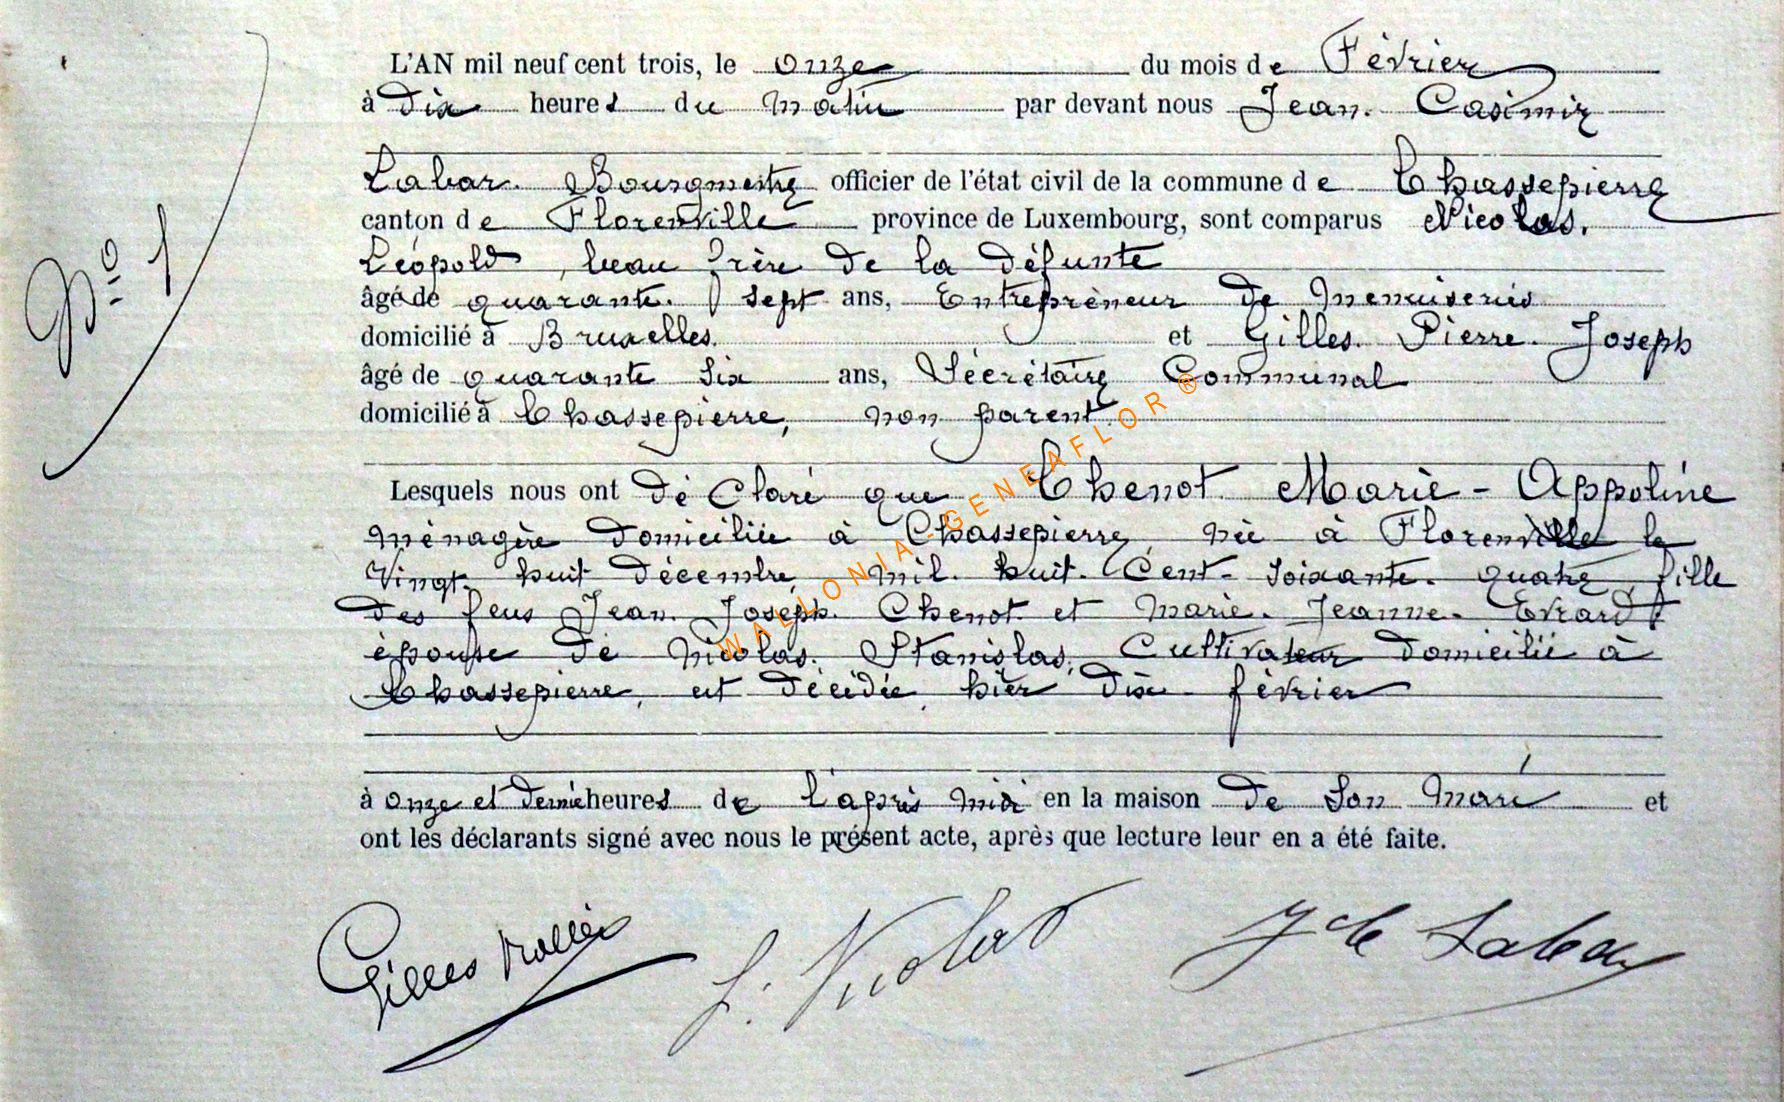 N° 1
L'AN mil neuf cent trois, le onze du mois de Février
à dix heures du matin par devant nous Jean. Casimir
Labar. Bourgmestre officier de l'état civil de la commune de Chassepierre
canton de Florenville province de Luxembourg, sont comparus Nicolas.
Léopold, beau frère de la défunte
âgé de quarante. sept ans, Entrepreneur de Menuiseries
domicilié à Bruxelles. et Gilles. Pierre. Joseph
âgé de quarante six ans, Sécrétaire Communal
domicilié à Chassepierre, non parent.
Lesquels nous ont déclaré que Chenot Marie-Appoline
ménagère domiciliée à Chassepierre, née à Florenville le
Vingt. huit décembre mil. huit. Cent. soixante. quatre, fille
des feus Jean. Joseph. Chenot. et Marie. Jeanne. Evrard
épouse de Nicolas. Stanislas, Cultivateur domicilié à
Chassepierre, est décédée, hier dix février
à onze et demie heures de l'après midi en la maison de son mari et
ont les déclarants signé avec nous le présent acte, après que lecture leur en a été faite.
Gilles L. Nicolas Labar
WALLONIA-GENEAFLOR®